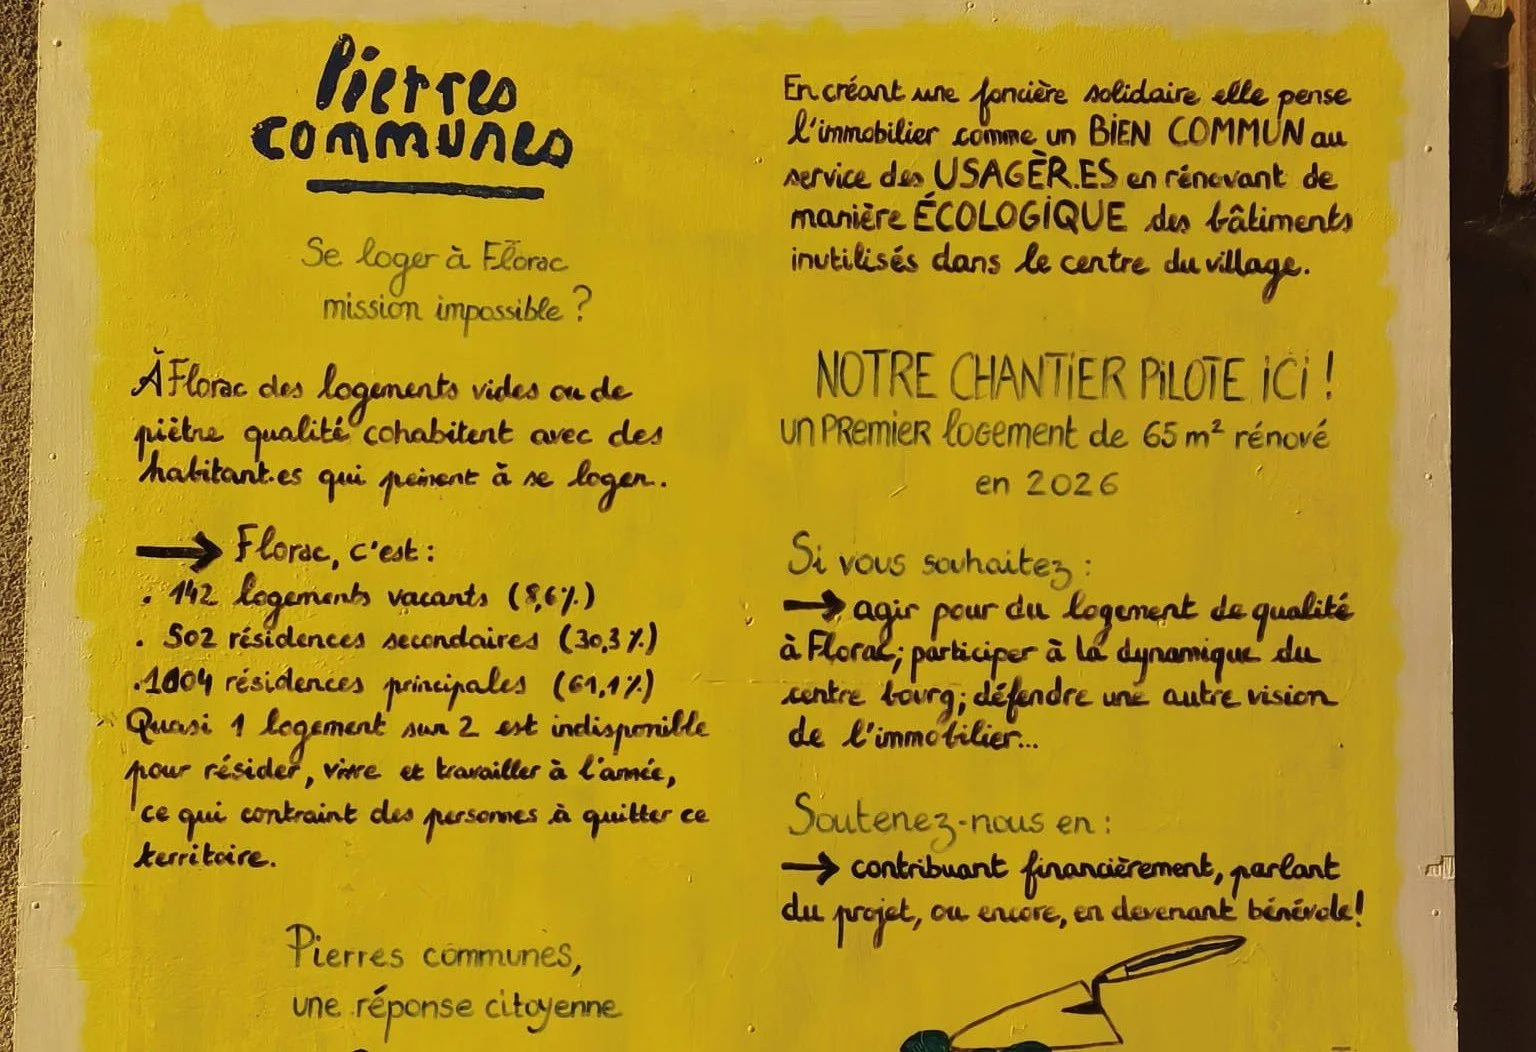 Pierres
communes
Se loger à Florac
mission impossible ?
À Florac des logements vides ou de
piètre qualité cohabitent avec des
habitant.es qui peinent à se loger.
→ Florac, c'est :
. 142 logements vacants (8,6%)
. 502 résidences secondaires (30,3%)
. 1004 résidences principales (61,1%)
Quasi 1 logement sur 2 est indisponible
pour résider, vivre et travailler à l'année,
ce qui contraint des personnes à quitter ce
territoire.
Pierres communes,
une réponse citoyenne
En créant une foncière solidaire elle pense
l'immobilier comme un BIEN COMMUN au
service des USAGÈR.ES en rénovant de
manière ÉCOLOGIQUE des bâtiments
inutilisés dans le centre du village.
NOTRE CHANTIER PILOTE ICI !
un PREMIER logement de 65 m² rénové
en 2026
Si vous souhaitez :
→ agir pour du logement de qualité
à Florac; participer à la dynamique du
centre bourg; défendre une autre vision
de l'immobilier...
Soutenez-nous en :
→ contribuant financièrement, parlant
du projet, ou encore, en devenant bénévole!